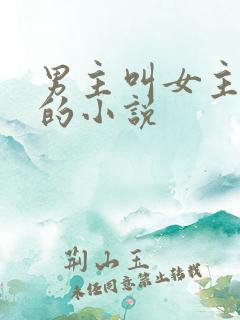 男主叫女主
的小说
荆山玉
未经同意禁止转载